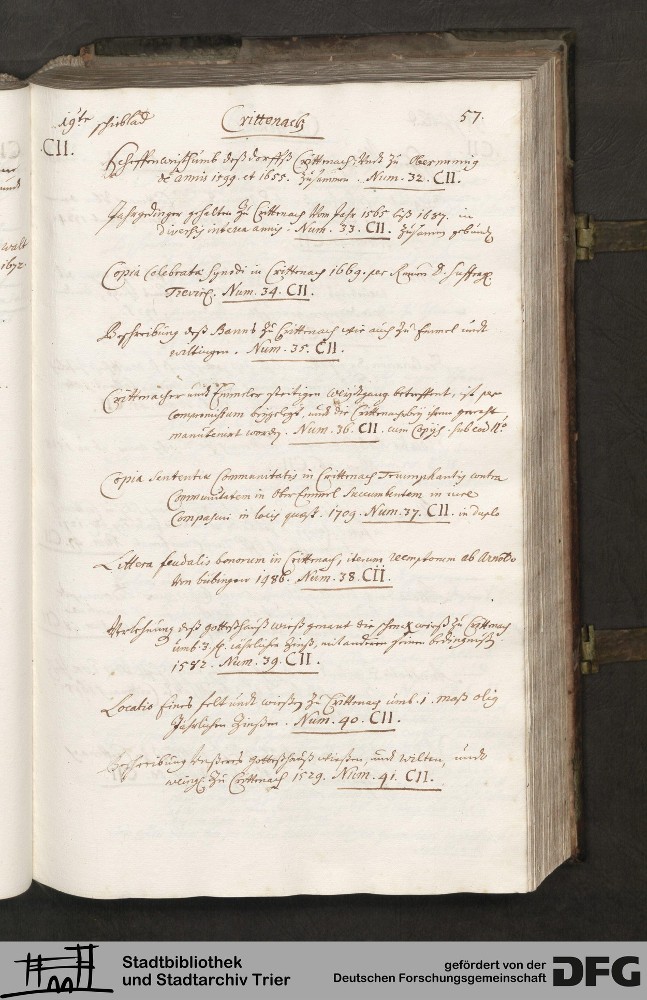 19te schieblad Crittenach 57.
CII.
Scheffenweisthumb deß dorffß Crittenach, undt zu Obermennig
de annis 1599. et 1655. zusammen. Num. 32. CII.
Jahrgedinger gehalten zu Crittenach Vom Jahr 1565 biß 1637. in
diversis interea annis. Num. 33. CII. zusamen gebundt
Copia Celebratæ Synodi in Crittenach 1669. per Rmum D. Suffrag.
Trevir. Num. 34. CII.
Beschreibung deß Banns zu Crittenach wie auch zu Emmel undt
wiltingen. Num. 35. CII.
Crittenacher undt Emmeler streitigen weydtgang betreffent, ist per
compromissum beygelegt, undt die Crittenacher bey ihrem gerecht,
manutenirt worden. Num. 36. CII. cum Copijs sub eod. No
Copia Sententiæ Communitatis in Crittenach Triumphantis contra
Communitatem in Ober Emmel Succumbentem in iure
Compascui in locis quæst. 1709. Num. 37. CII. in duplo
Littera feudalis bonorum in Crittenach, iterum reemptorum ab Arnoldo
Von bübingen 1486. Num. 38. CII.
Verlehnung deß gotteßhauß wieß genant die schenck wieß zu Crittenach
umb 3. fl. jährliche Zinß, mit anderen herinn bedingnuß
1582. Num. 39. CII.
Locatio Eines felt undt wießen zu Crittenach umb. 1. maß olig
Jährlichen Zinßen. Num. 40. CII.
Beschreibung Unßeres Gotteßhauß wießen, undt Wilten, undt
zu Crittenach 1529. Num. 41. CII.
walt
1672.
Stadtbibliothek
und Stadtarchiv Trier
gefördert von der
Deutschen Forschungsgemeinschaft
DFG